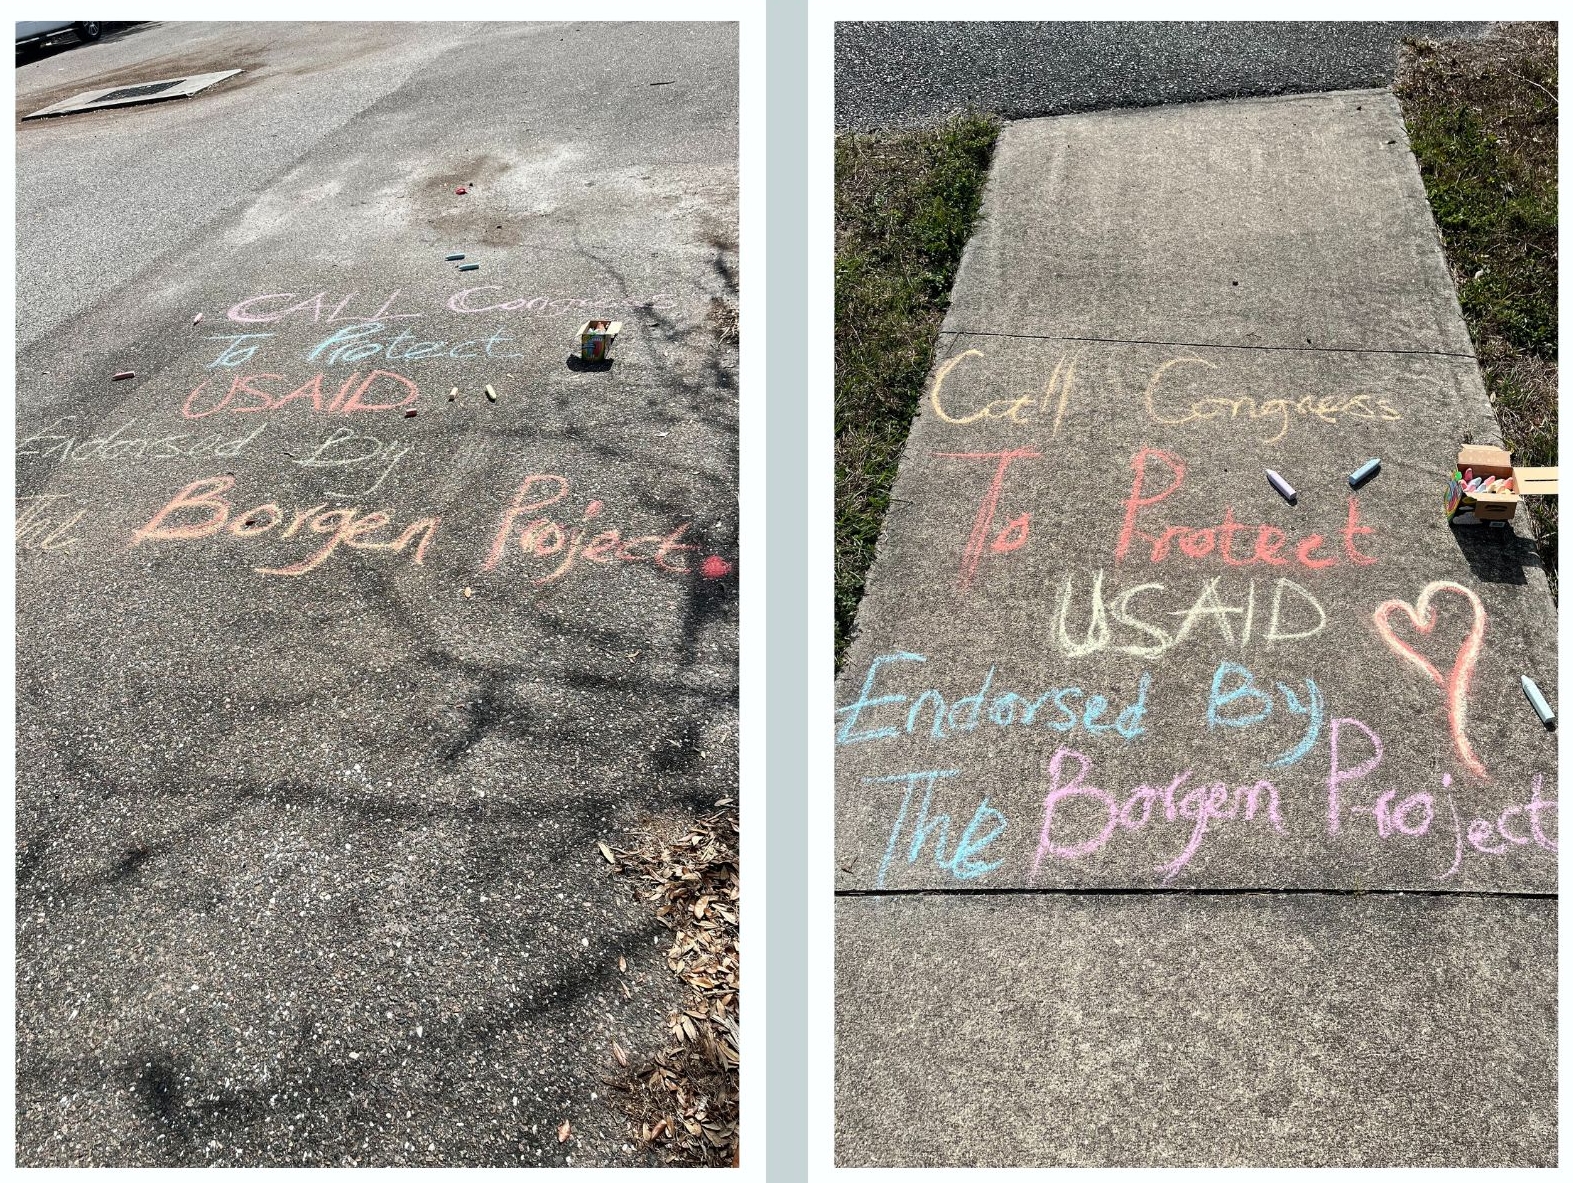 CALL Congress
To Protect
USAID
Endorsed By
The Borgen Project.
Call Congress
To Protect
USAID
Endorsed By
The Borgen Project